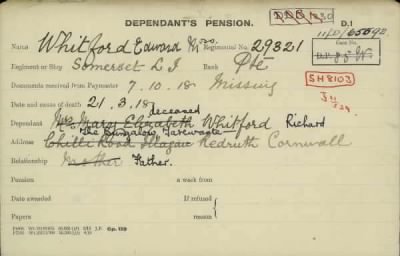 DEPENDANT'S PENSION. D.1
11/D/65592
Name Whitford Edward Regimental No. 29321
Case No.
Regiment or Ship Somerset L I Rank Pte
SH8103
Documents received from Paymaster 7.10.18 Missing
Date and cause of death 21.3.18
deceased
Dependant Mrs Mary Elizabeth Whitford Richard
The Bungalow,
Address Road Illogan Redruth Cornwall
Relationship Mother Father.
Pension a week from
Date awarded If refused
Papers reason